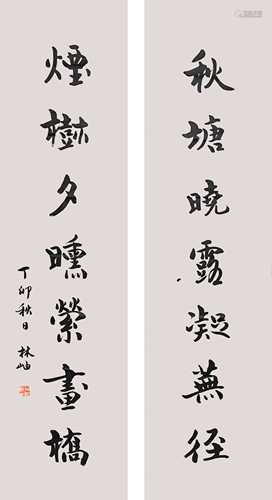 秋塘曉露凝蕪徑
煙樹夕曛縈畫橋
丁卯秋日 林岫